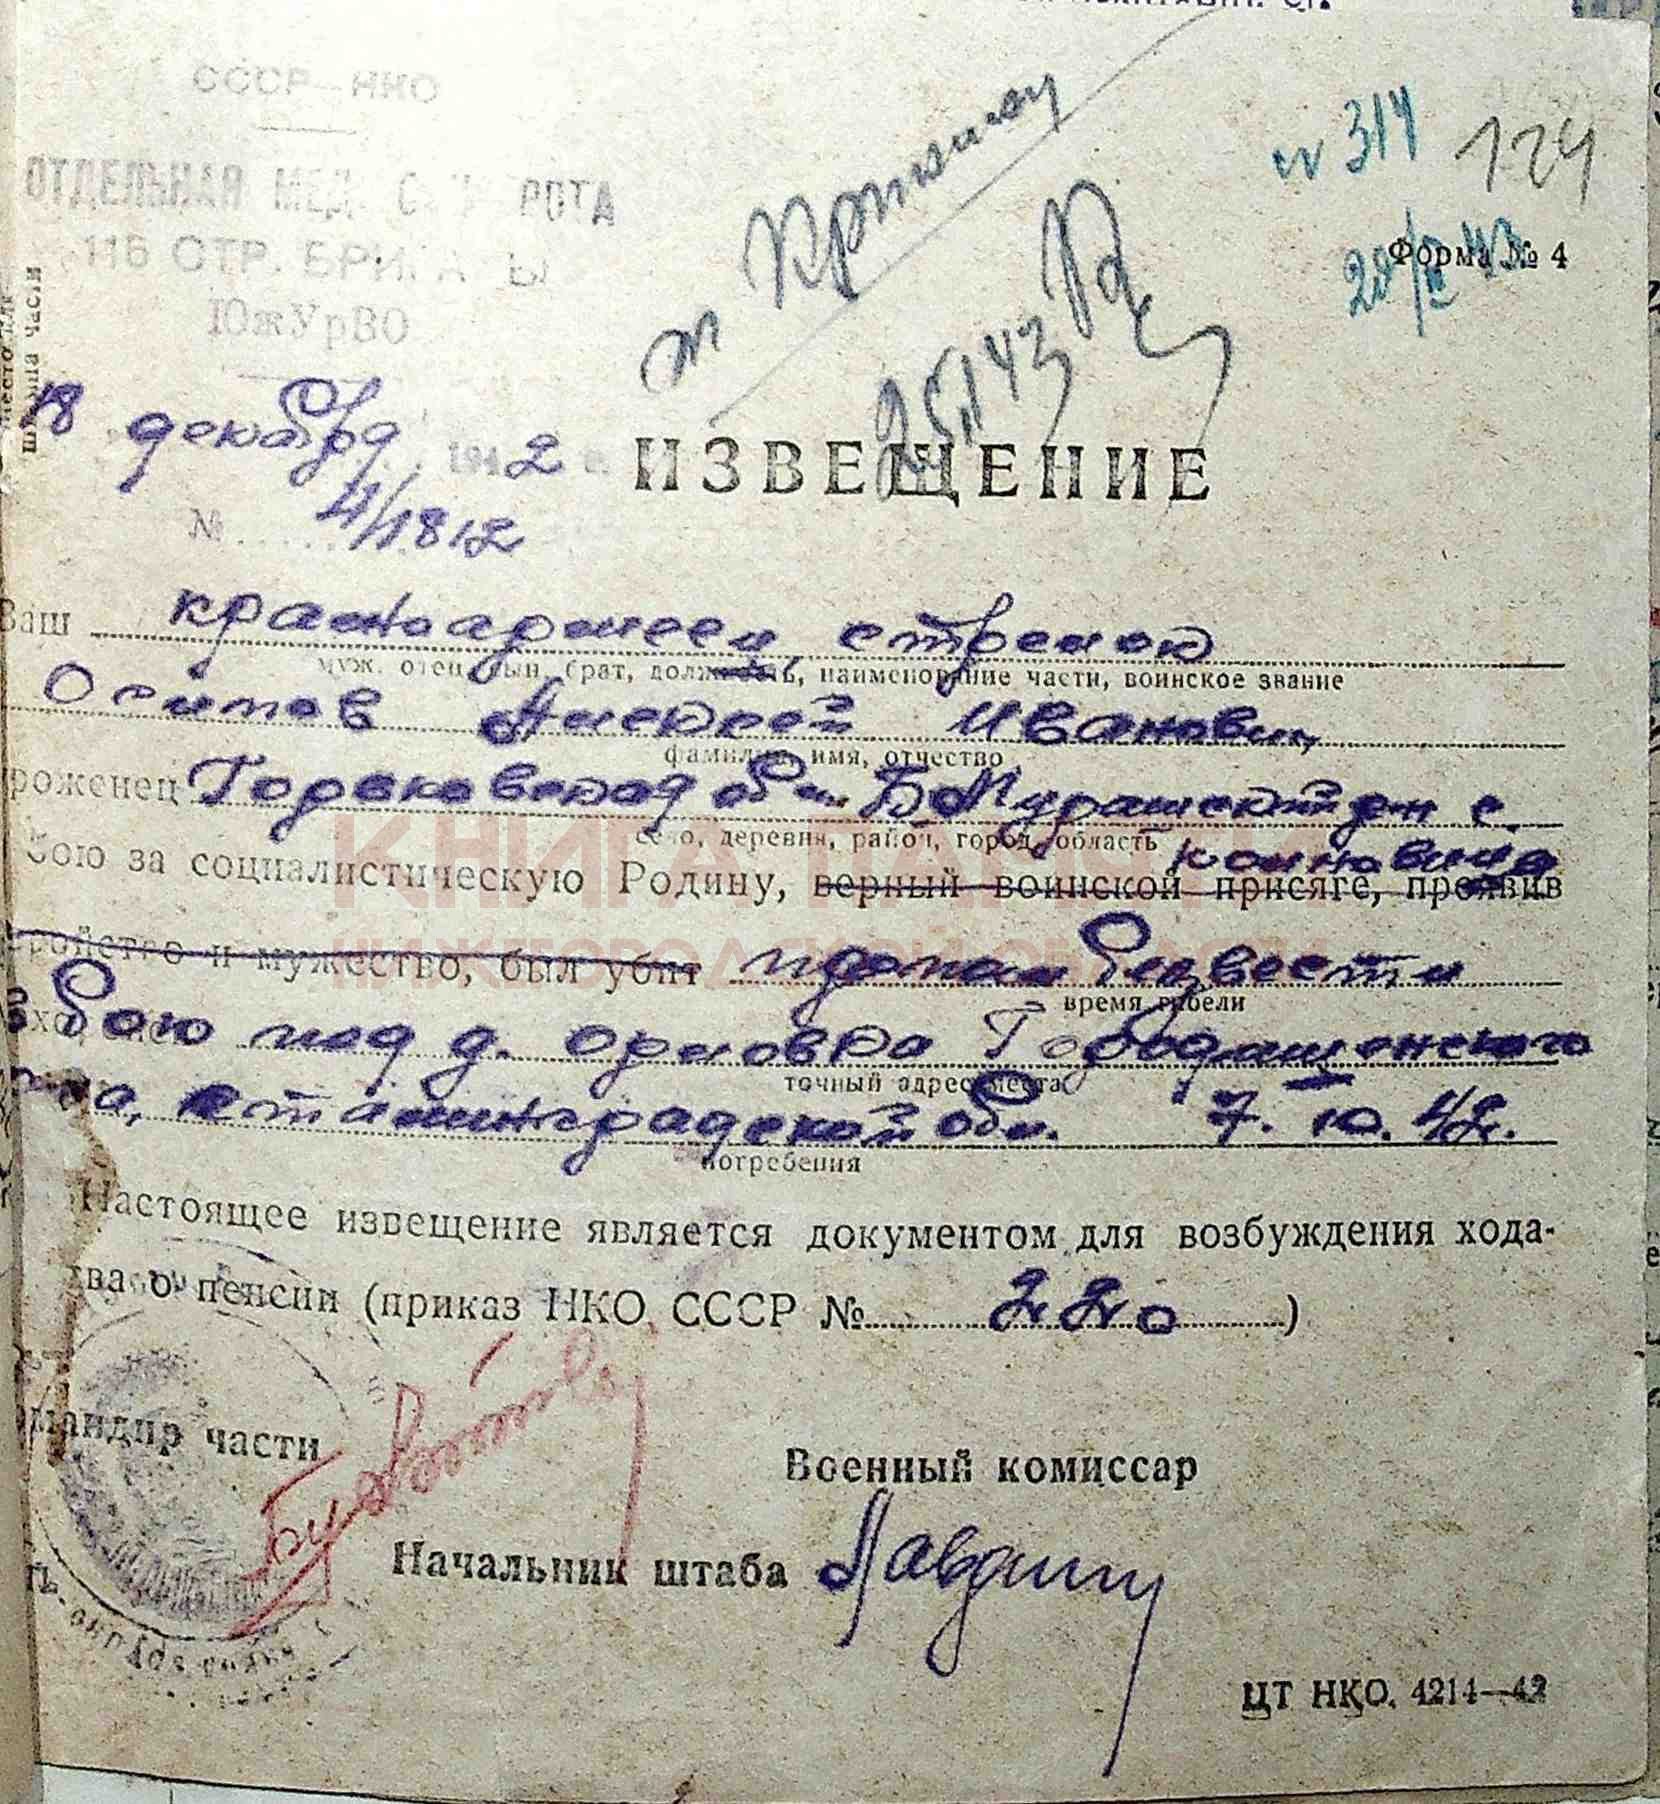 СССР—НКО
ОТДЕЛЬНАЯ МЕД. РОТА
116 СТР. БРИГАДЫ
ЮжУрВО
18 декабря 1942 г.
№ 4/1812
№ 314 124
Форма № 4
ИЗВЕЩЕНИЕ
Ваш красноармеец стрелок
муж, отец, сын, брат, должность, наименование части, воинское звание
Осипов Андрей Иванович
фамилия, имя, отчество
роженец Горьковская обл. Б. Мурашк р-н с.
село, деревня, район, город, область
бою за социалистическую Родину, верный воинской присяге, проявив
геройство и мужество, был убит пропал без вести
время гибели
в бою под д. Орловка Городищенского
точный адрес места
р-на, Сталинградской обл. 7.10.42.
погребения
Настоящее извещение является документом для возбуждения хода-
ва о пенсии (приказ НКО СССР № 220)
мандир части
Военный комиссар
Начальник штаба
ЦТ НКО. 4214—42
КНИГА ПАМЯТИ
НИЖЕГОРОДСКОЙ ОБЛАСТИ